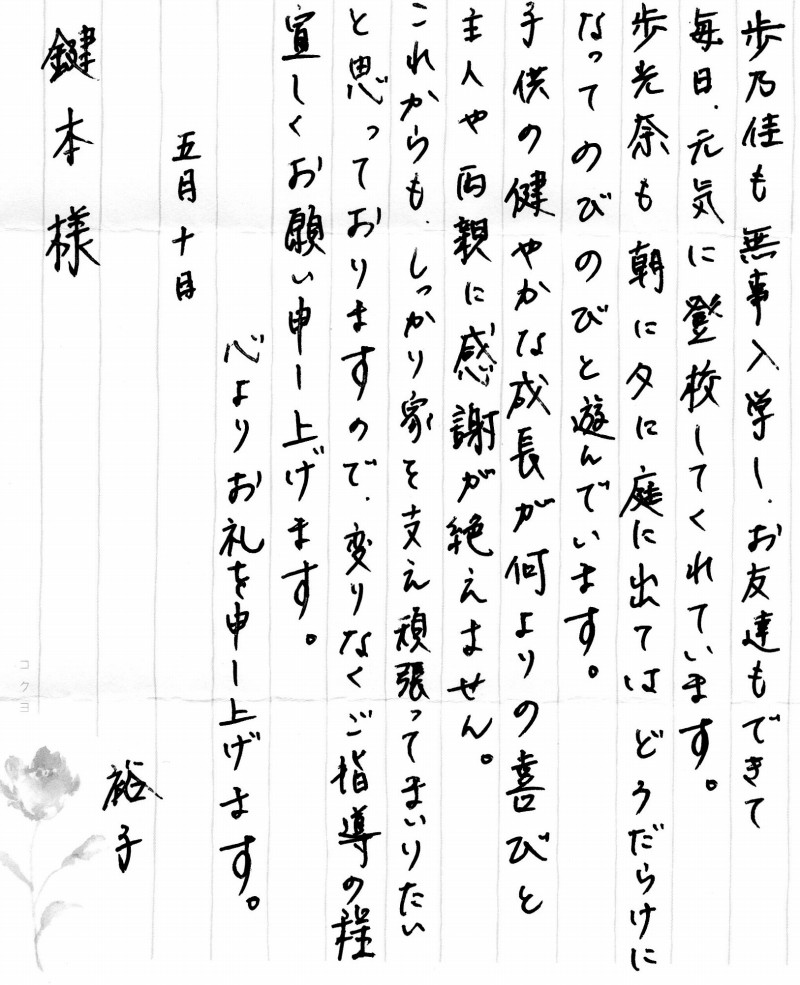 歩乃佳も無事入学し、お友達もできて
毎日、元気に登校してくれています。
歩光奈も朝に夕に庭に出ては どろだらけに
なってのびのびと遊んでいます。
子供の健やかな成長が何よりの喜びと
主人や両親に感謝が絶えません。
これからも、しっかり家を支え頑張ってまいりたい
と思っておりますので、変りなくご指導の程
宜しくお願い申し上げます。
心よりお礼を申し上げます。
五月十日
裕子
鍵本様
コクヨ